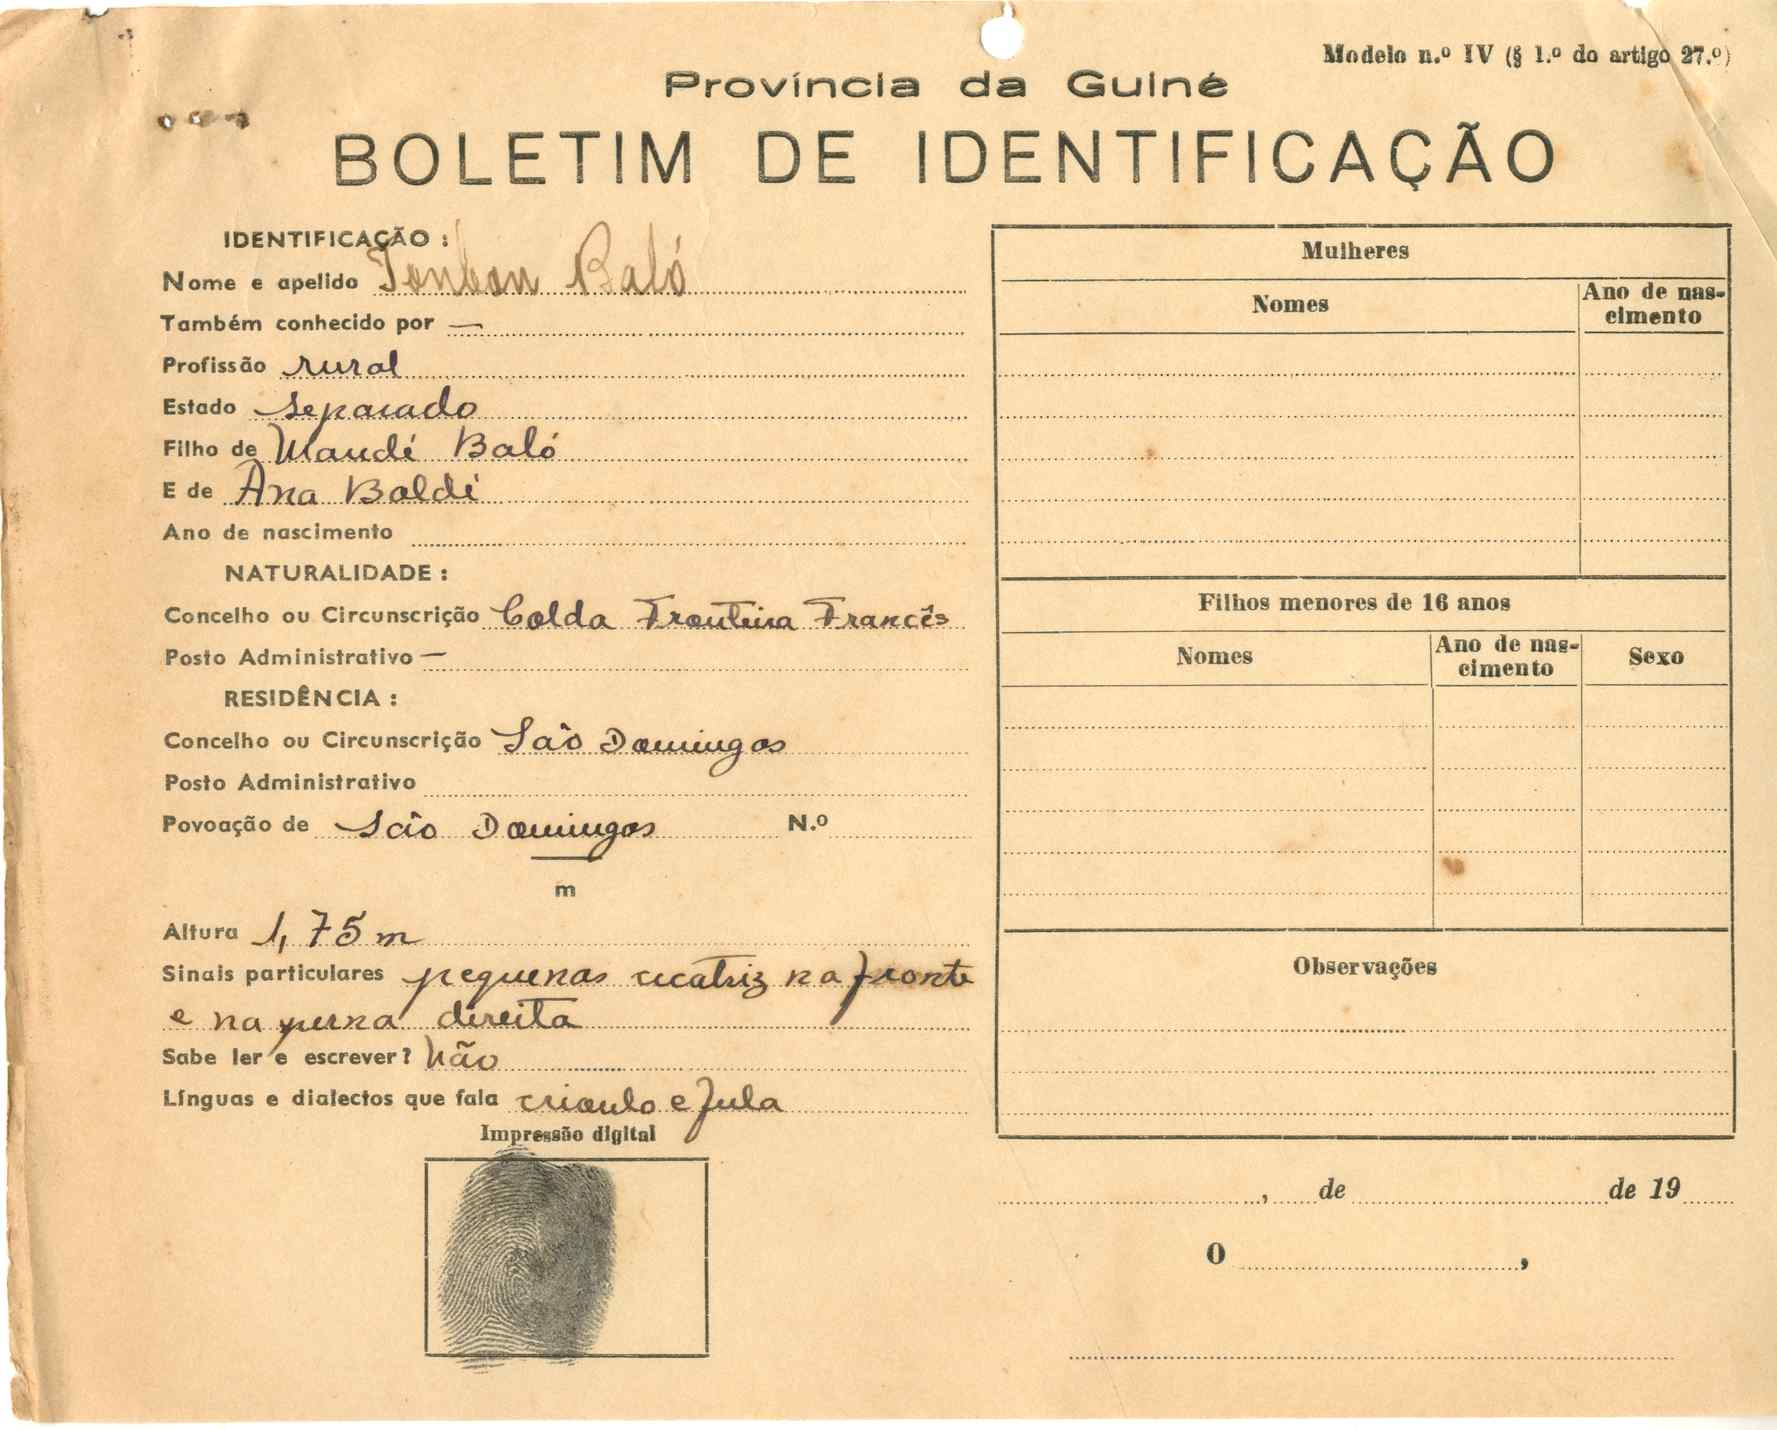 Modelo n.º IV (§ 1.º do artigo 27.º)
Província da Guiné
BOLETIM DE IDENTIFICAÇÃO
IDENTIFICAÇÃO :
Nome e apelido Tombon Baló
Também conhecido por —
Profissão rural
Estado separado
Filho de Maudé Baló
E de Ana Baldé
Ano de nascimento
NATURALIDADE :
Concelho ou Circunscrição Colda Fronteira Francês
Posto Administrativo —
RESIDÊNCIA :
Concelho ou Circunscrição São Domingos
Posto Administrativo
Povoação de São Domingos N.º
m
Altura 1,75 m
Sinais particulares pequenas cicatriz na fronte
e na perna direita
Sabe ler e escrever? Não
Línguas e dialectos que fala crioulo e fula
Impressão digital
Mulheres
Nomes
Ano de nas-
cimento
Filhos menores de 16 anos
Nomes
Ano de nas-
cimento
Sexo
Observações
, de de 19
O ,